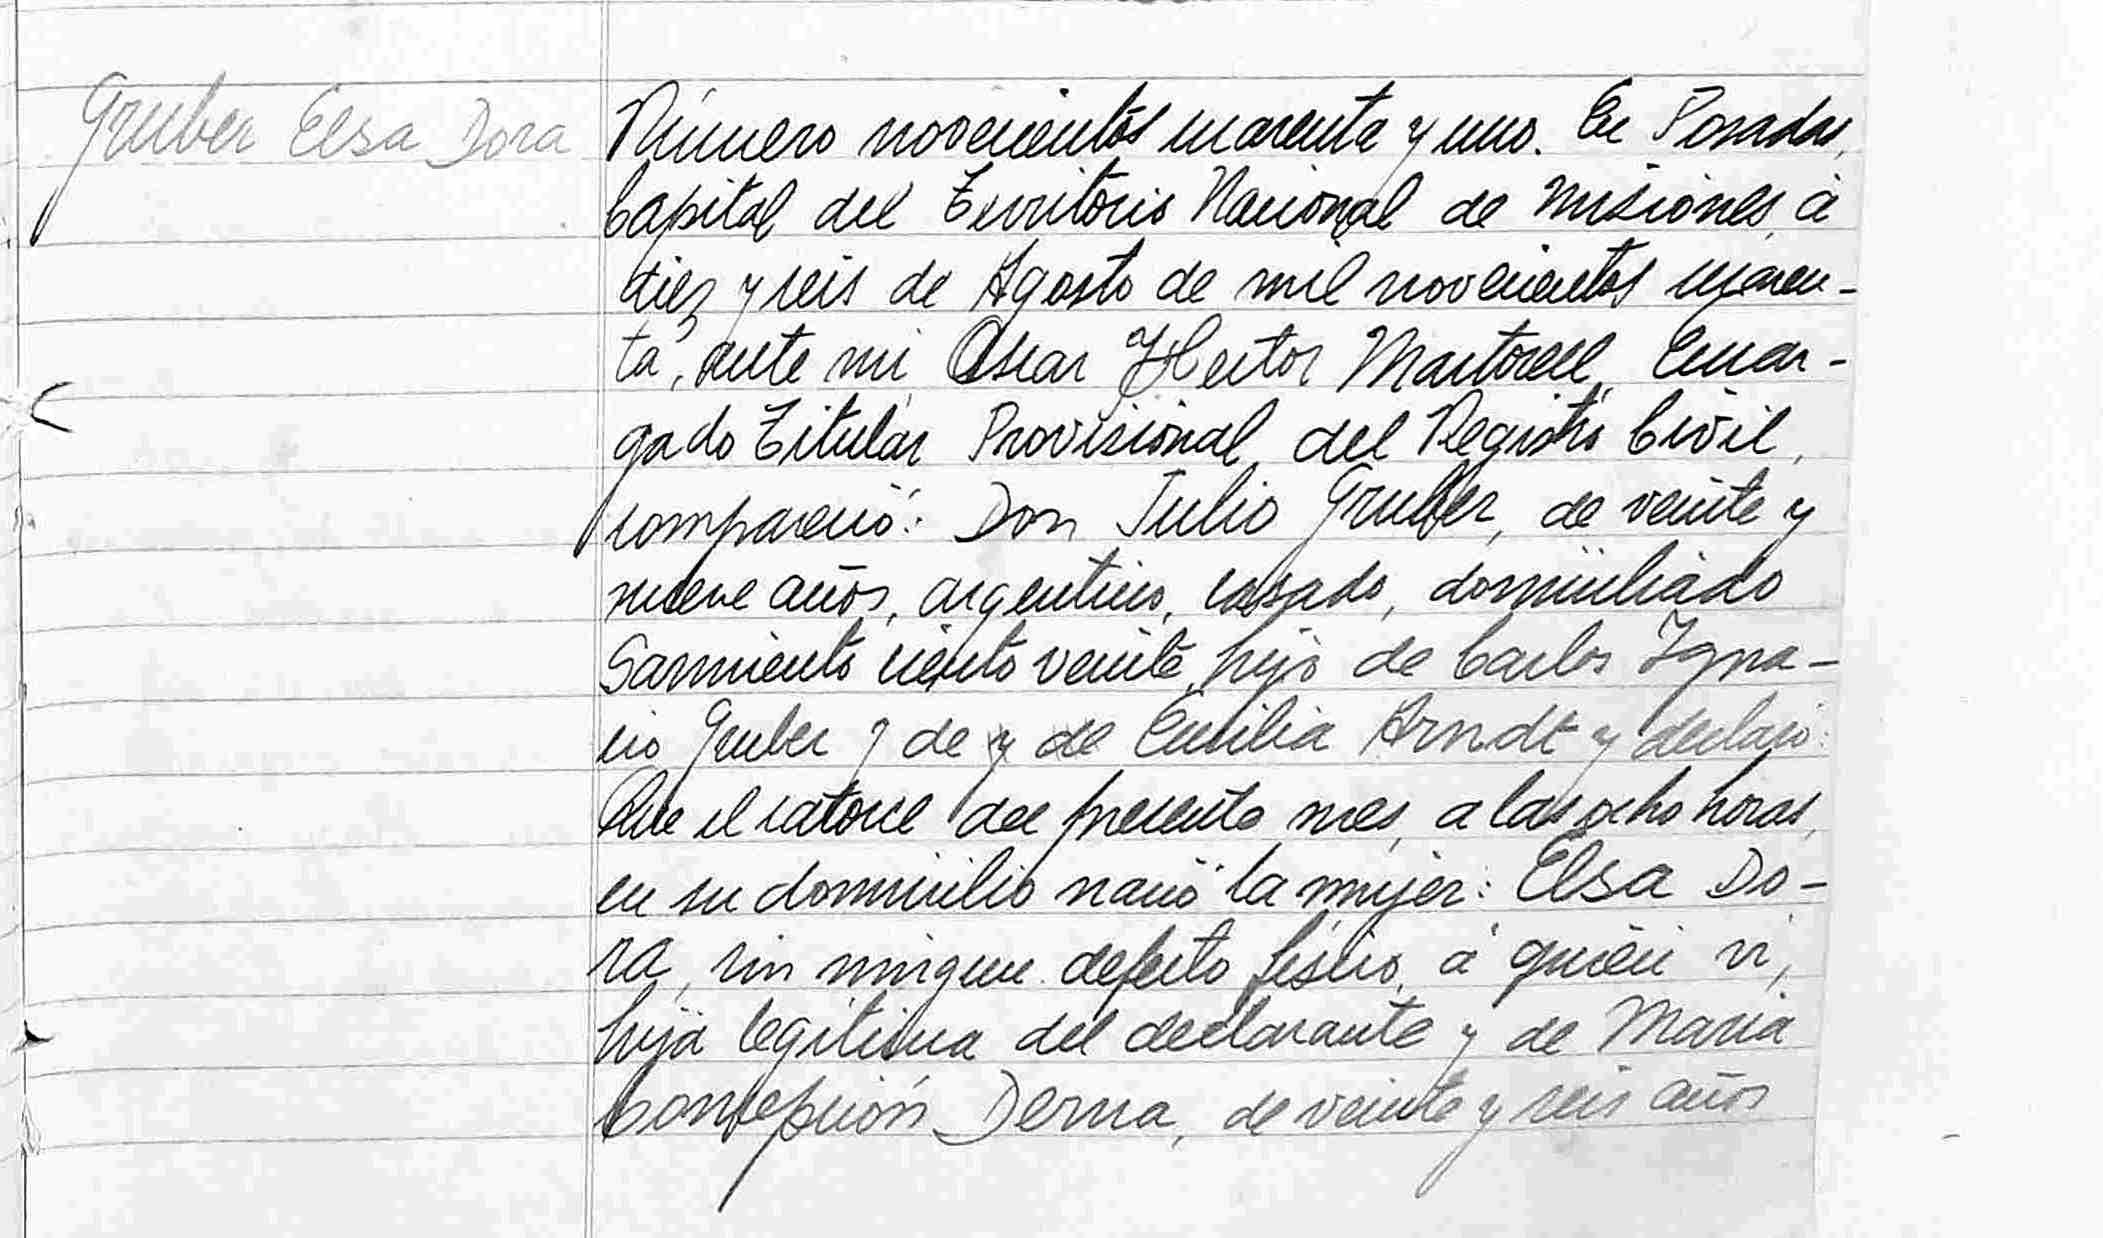 Gruber Elsa Dora
Número novecientos cuarenta y uno. En Posadas,
Capital del Territorio Nacional de Misiones, á
diez y seis de Agosto de mil novecientos cuaren-
ta, ante mi, Oscar Hector Martorell, Encar-
gado Titular Provisional del Registro Civil,
compareció: Don Julio Gruber, de veinte y
nueve años, argentino, casado, domiciliado
Sarmiento ciento veinte, hijo de Carlos Igna-
cio Gruber y de y de Emilia Arndt y declaró:
Que el catorce del presente mes, a las ocho horas,
en su domicilio nació la mujer: Elsa Do-
ra, sin ningun defecto fisico, á quien vi,
hija legítima del declarante y de Maria
Concepción Derna, de veinte y seis años